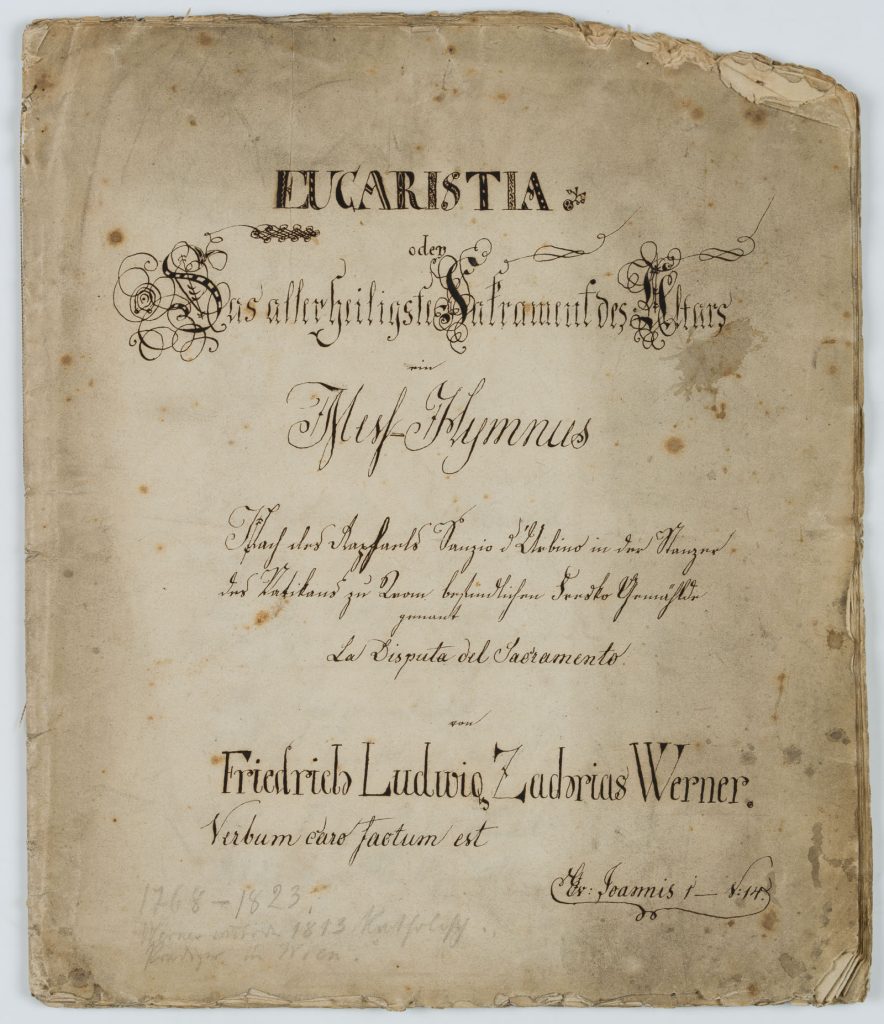 EUCARISTIA.
oder
Das allerheiligste Sakrament des Altars
ein
Meß-Hymnus
Nach des Raphaels Sanzio d'Urbino in der Stanzen
des Vatikans zu Rom befindlichen Fresko Gemählde
genant
La Disputa del Sacramento.
von
Friedrich Ludwig Zachrias Werner.
Verbum caro factum est
Ev: Joannis 1 – V: 14.
1768 – 1823.
Werner 1813 Katholisch
in Wien.